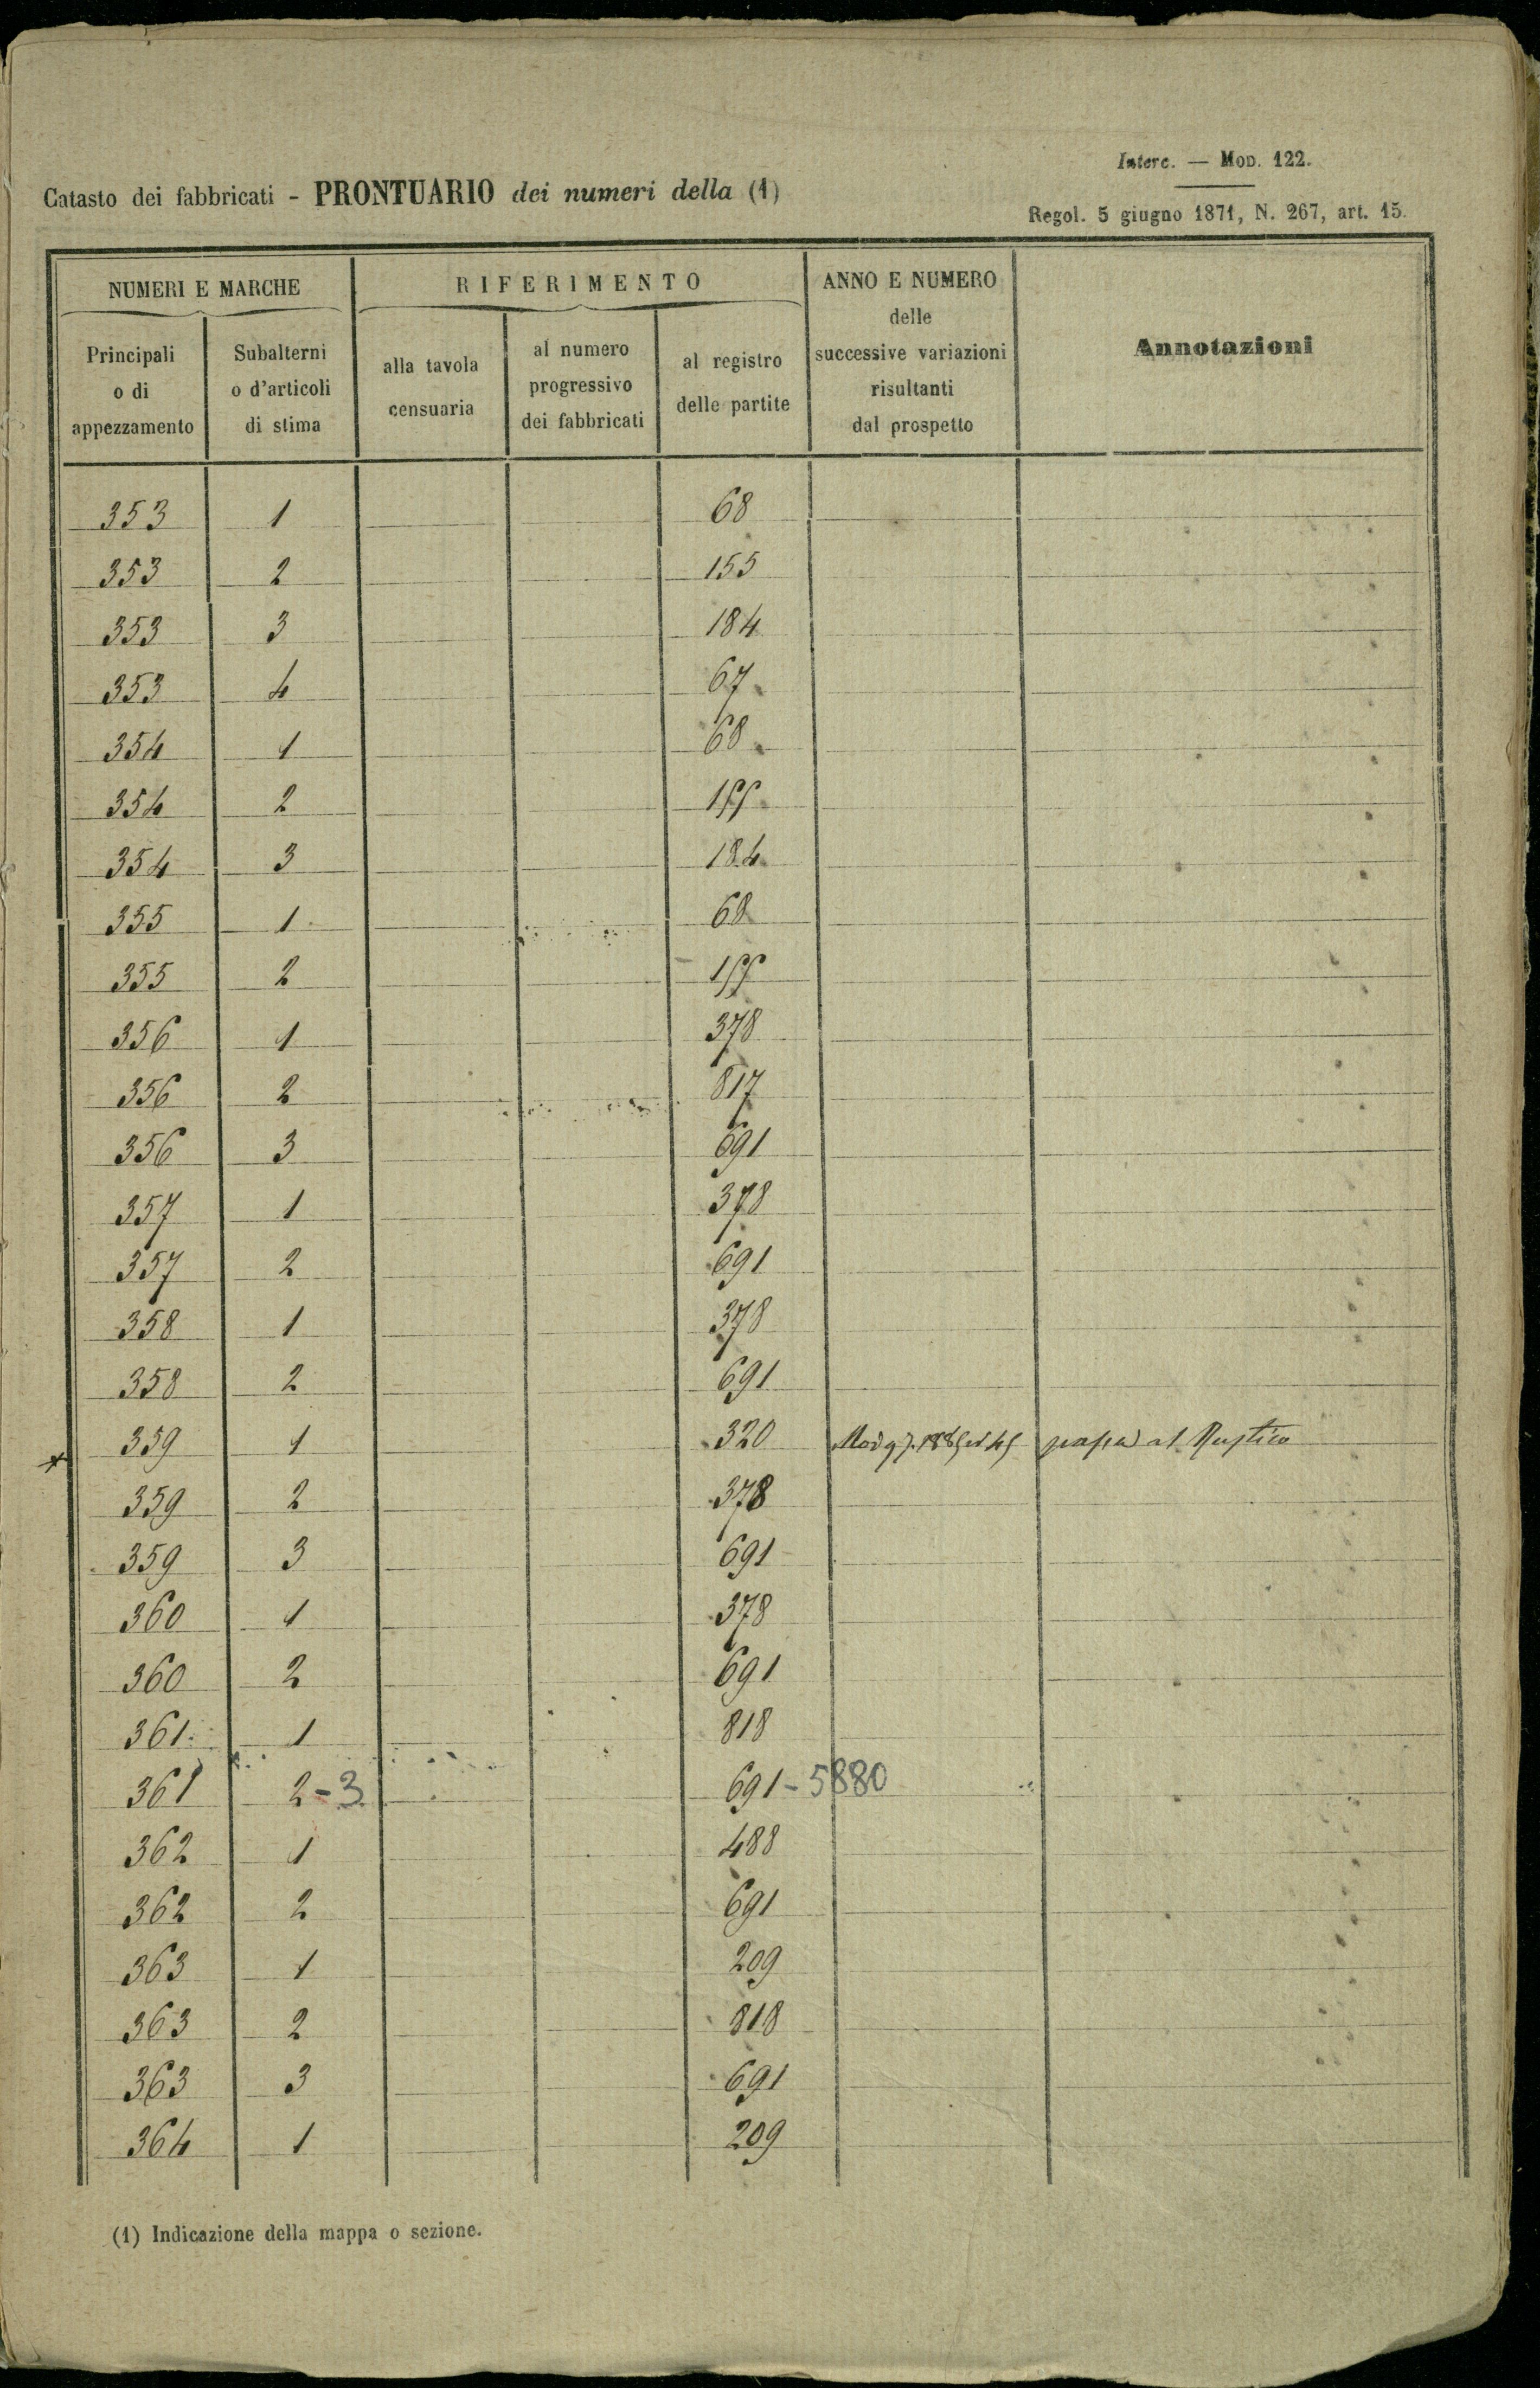 Interc. — Mod. 122.
Catasto dei fabbricati - PRONTUARIO dei numeri della (1)
Regol. 5 giugno 1871, N. 267, art. 15.
NUMERI E MARCHE
RIFERIMENTO
ANNO E NUMERO delle successive variazioni risultanti dal prospetto
Annotazioni
Principali o di appezzamento
Subalterni o d'articoli di stima
alla tavola censuaria
al numero progressivo dei fabbricati
al registro delle partite
353 1 68
353 2 155
353 3 184
353 4 67
354 1 68
354 2 155
354 3 184
355 1 68
355 2 155
356 1 378
356 2 817
356 3 691
357 1 378
357 2 691
358 1 378
358 2 691
359 1 320 Mod 97. passa al Rustico
359 2 378
359 3 691
360 1 378
360 2 691
361 1 818
361 2-3 691-5880
362 1 488
362 2 691
363 1 209
363 2 818
363 3 691
364 1 209
(1) Indicazione della mappa o sezione.